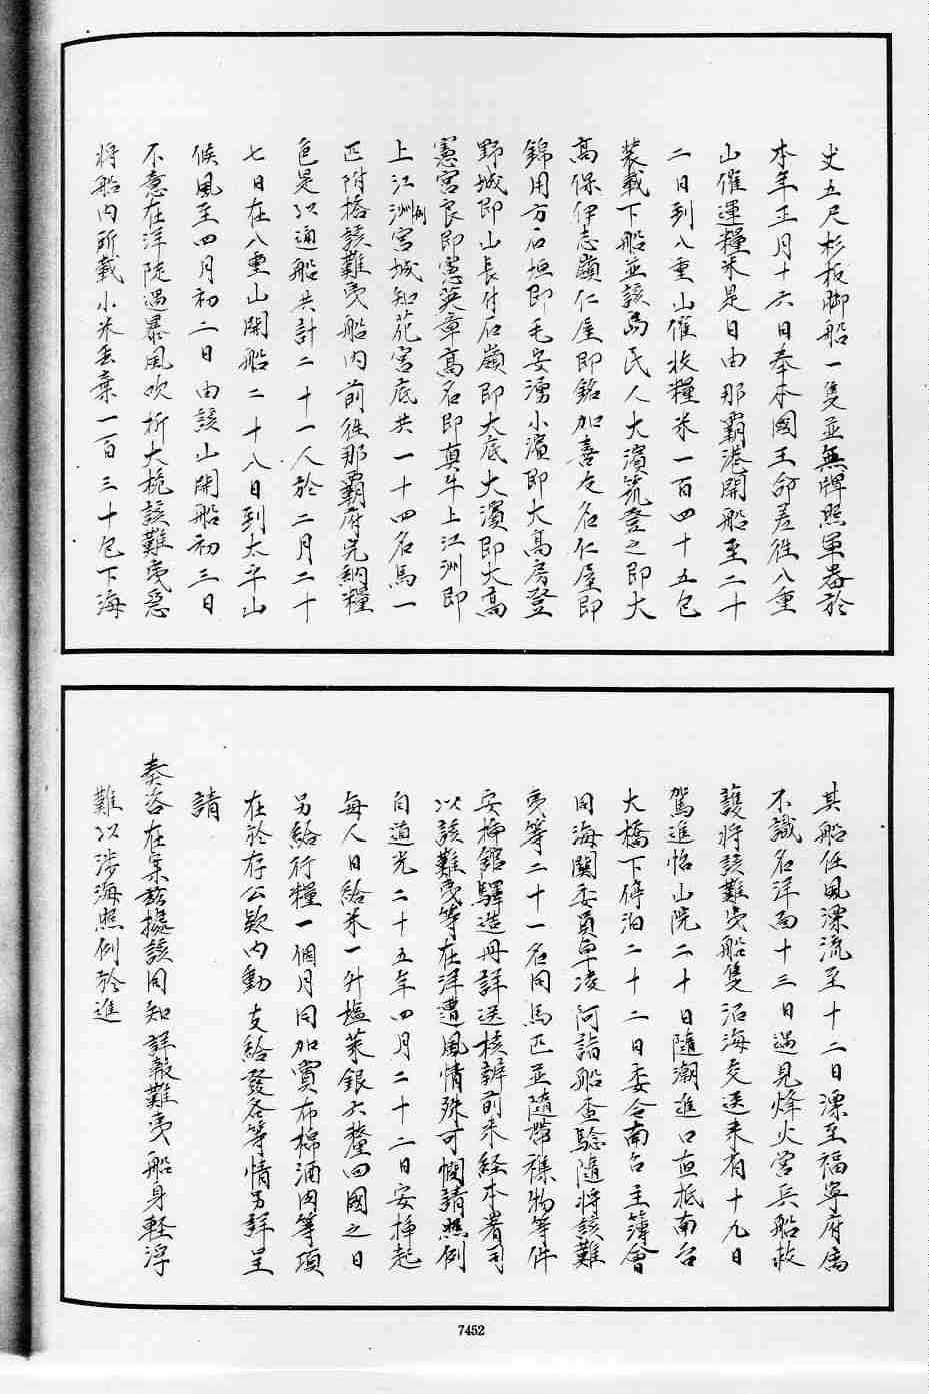 丈五尺杉板脚船一隻並無牌照軍器於
本年正月十六日奉本國王命差徃八重
山催運糧米是日由那霸港開船至二十
二日到八重山催收糧米一百四十五包
裝載下船並該島民人大濱筑登之即大
高保伊志嶺仁屋即銘加喜友名仁屋即
錦用方石垣即毛安湧小濱即大高房登
野城即山長付石嶺即大底大濱即大高
憲宮良即憲英章高名即真牛上江洲即
上江洲宮城知花宮底共一十四名馬一
匹附搭該難夷船内前徃那霸府完納糧
色是以通船共計二十一人於二月二十
七日在八重山開船二十八日到太平山
候風至四月初二日由該山開船初三日
不意在洋陡遇暴風吹折大桅該難夷急
将船内所載小米丟棄一百三十包下海
其船任風漂流至十二日漂至福寧府属
不識名洋面十三日遇見烽火營兵船救
護将該難夷船隻沿海交送来有十九日
駕進怡山院二十日隨潮進口直抵南台
大橋下停泊二十二日委令南台主簿會
同海關委員卓凌阿詣船查驗隨將該難
夷等二十一名同馬匹並隨帶襍物等件
安挿館驛造冊詳送核辦前来経本署司
以該難夷等在洋遭風情殊可憫請照例
自道光二十五年四月二十二日安挿起
每人日給米一升塩菜銀六釐回國之日
另給行糧一個月同加賞布棉酒肉等項
在於存公欵内動支給發各等情另詳呈
請
奏咨在案玆據該同知詳報難夷船身軽浮
難以渉海照例於進
7452